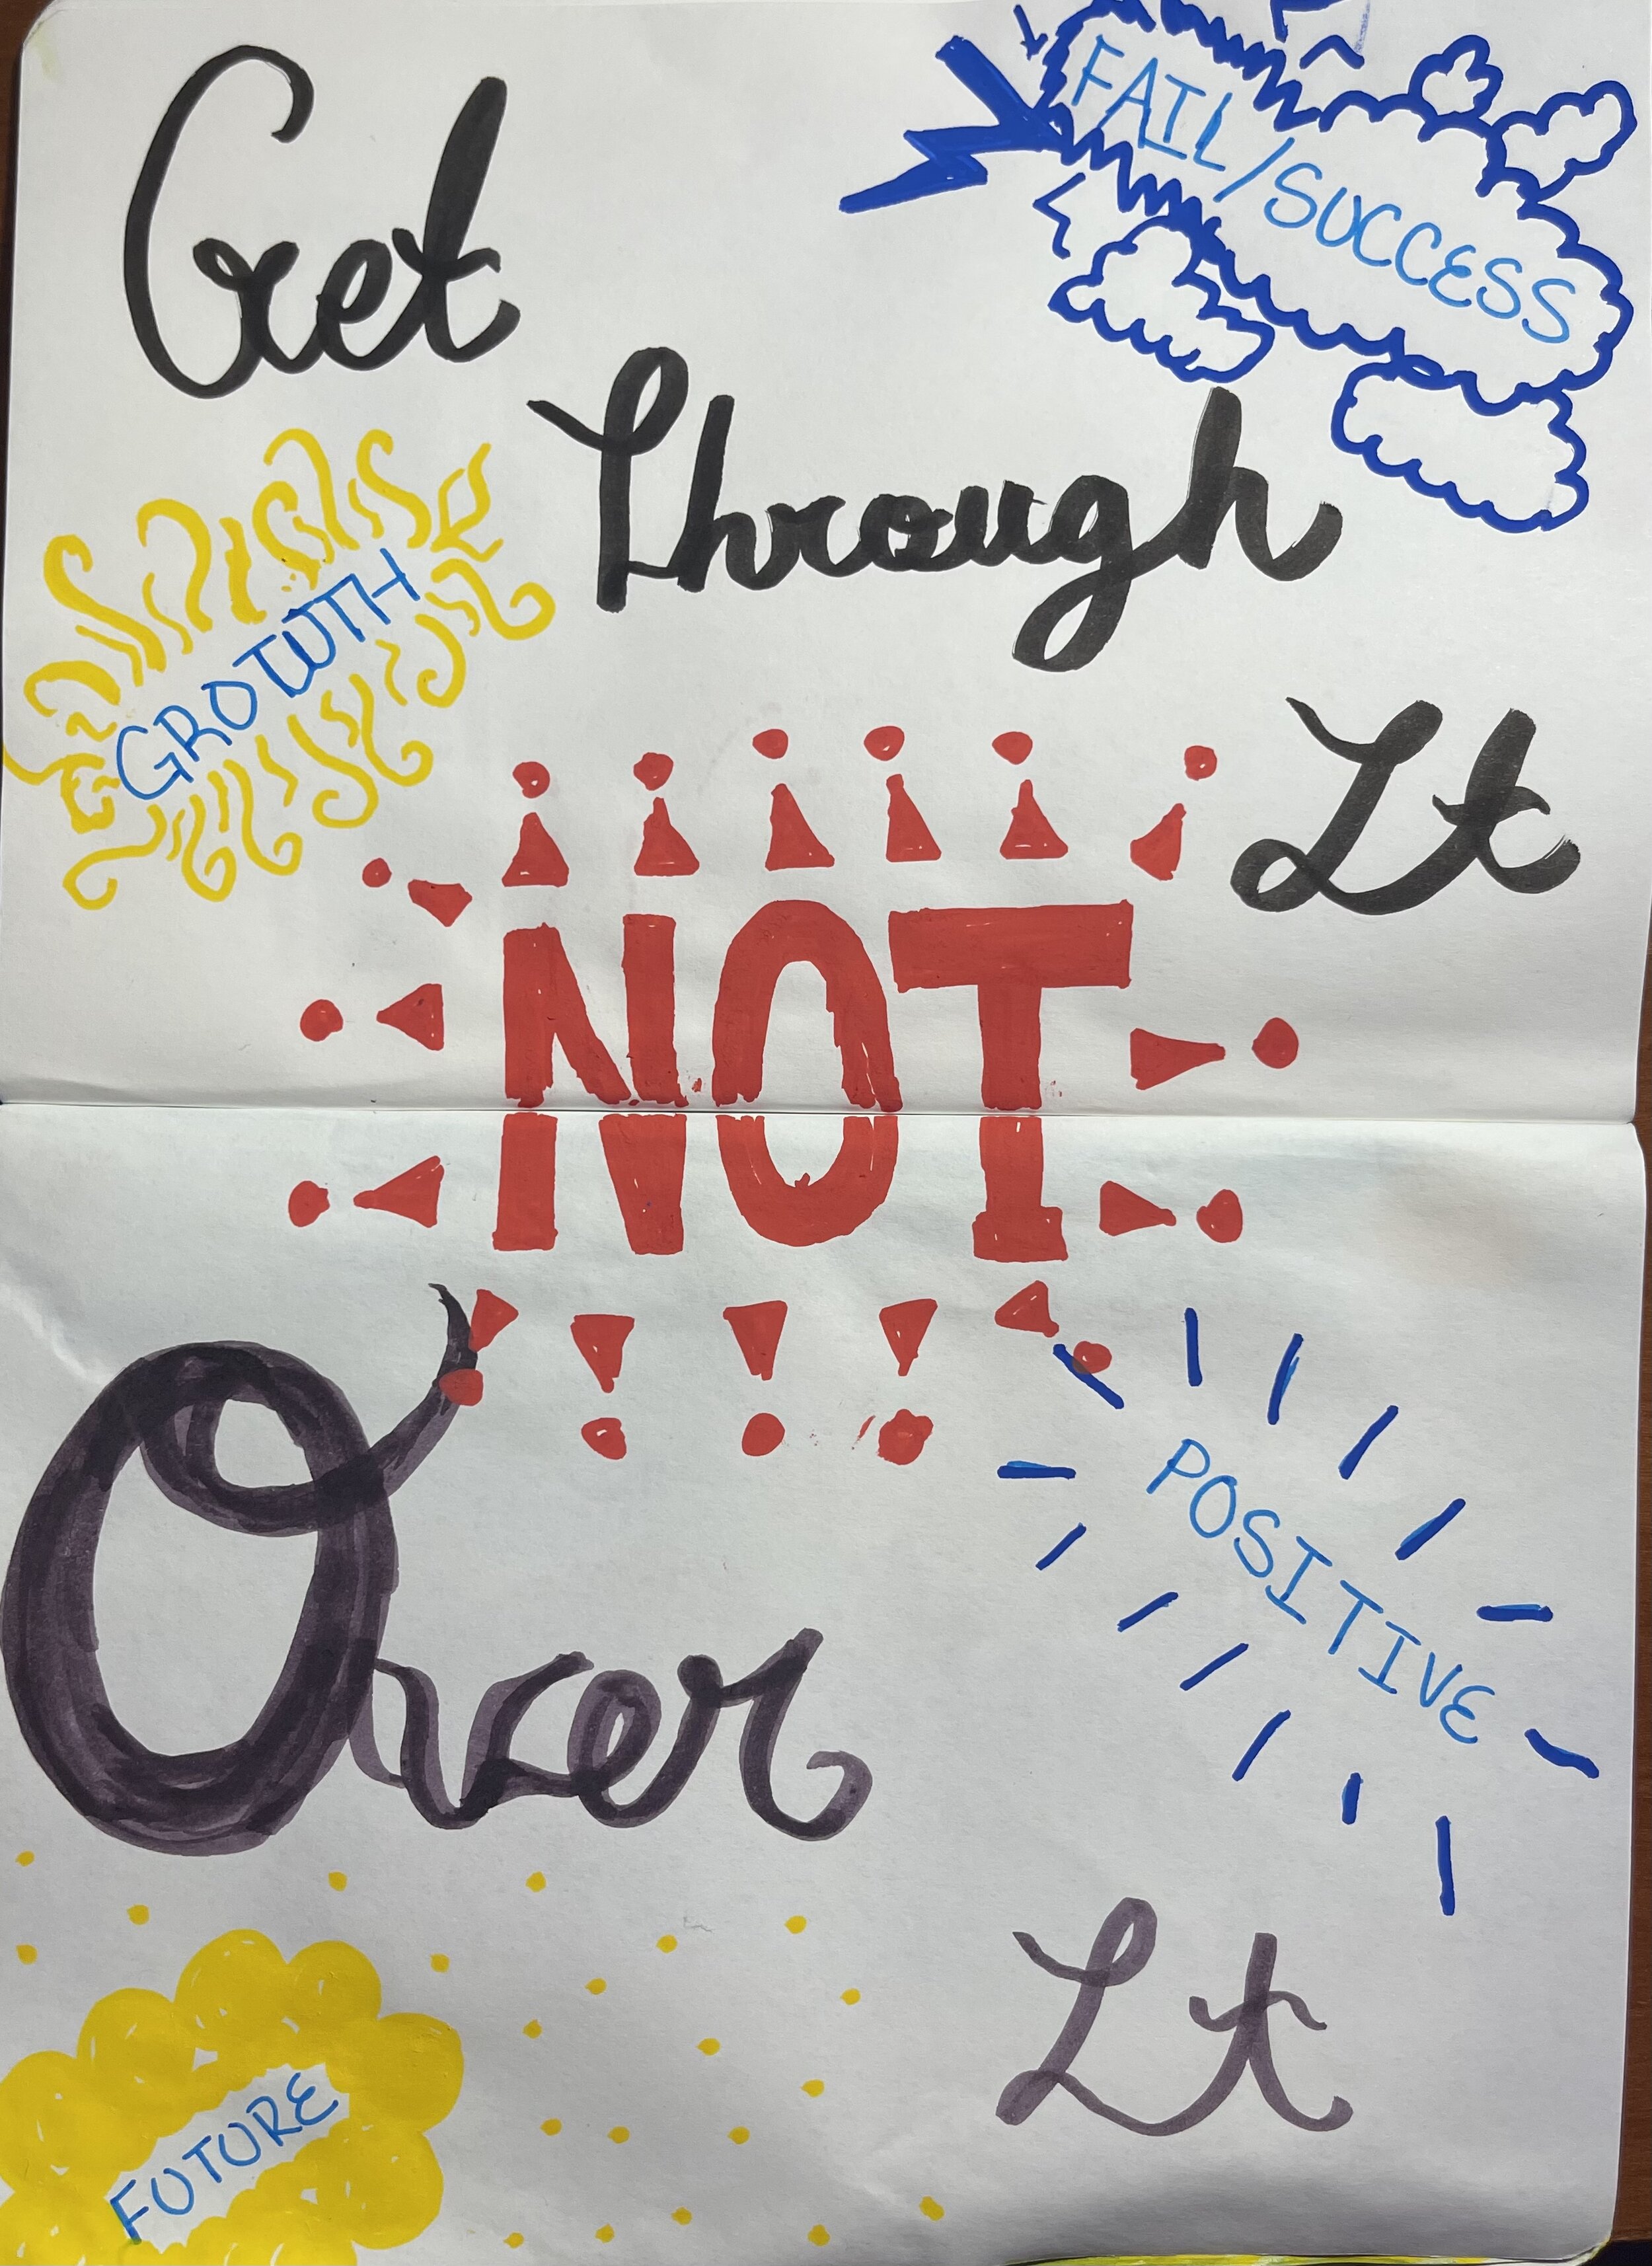 Get
FAIL/SUCCESS
Through
GROWTH
It
NOT
Over
POSITIVE
It
FUTURE